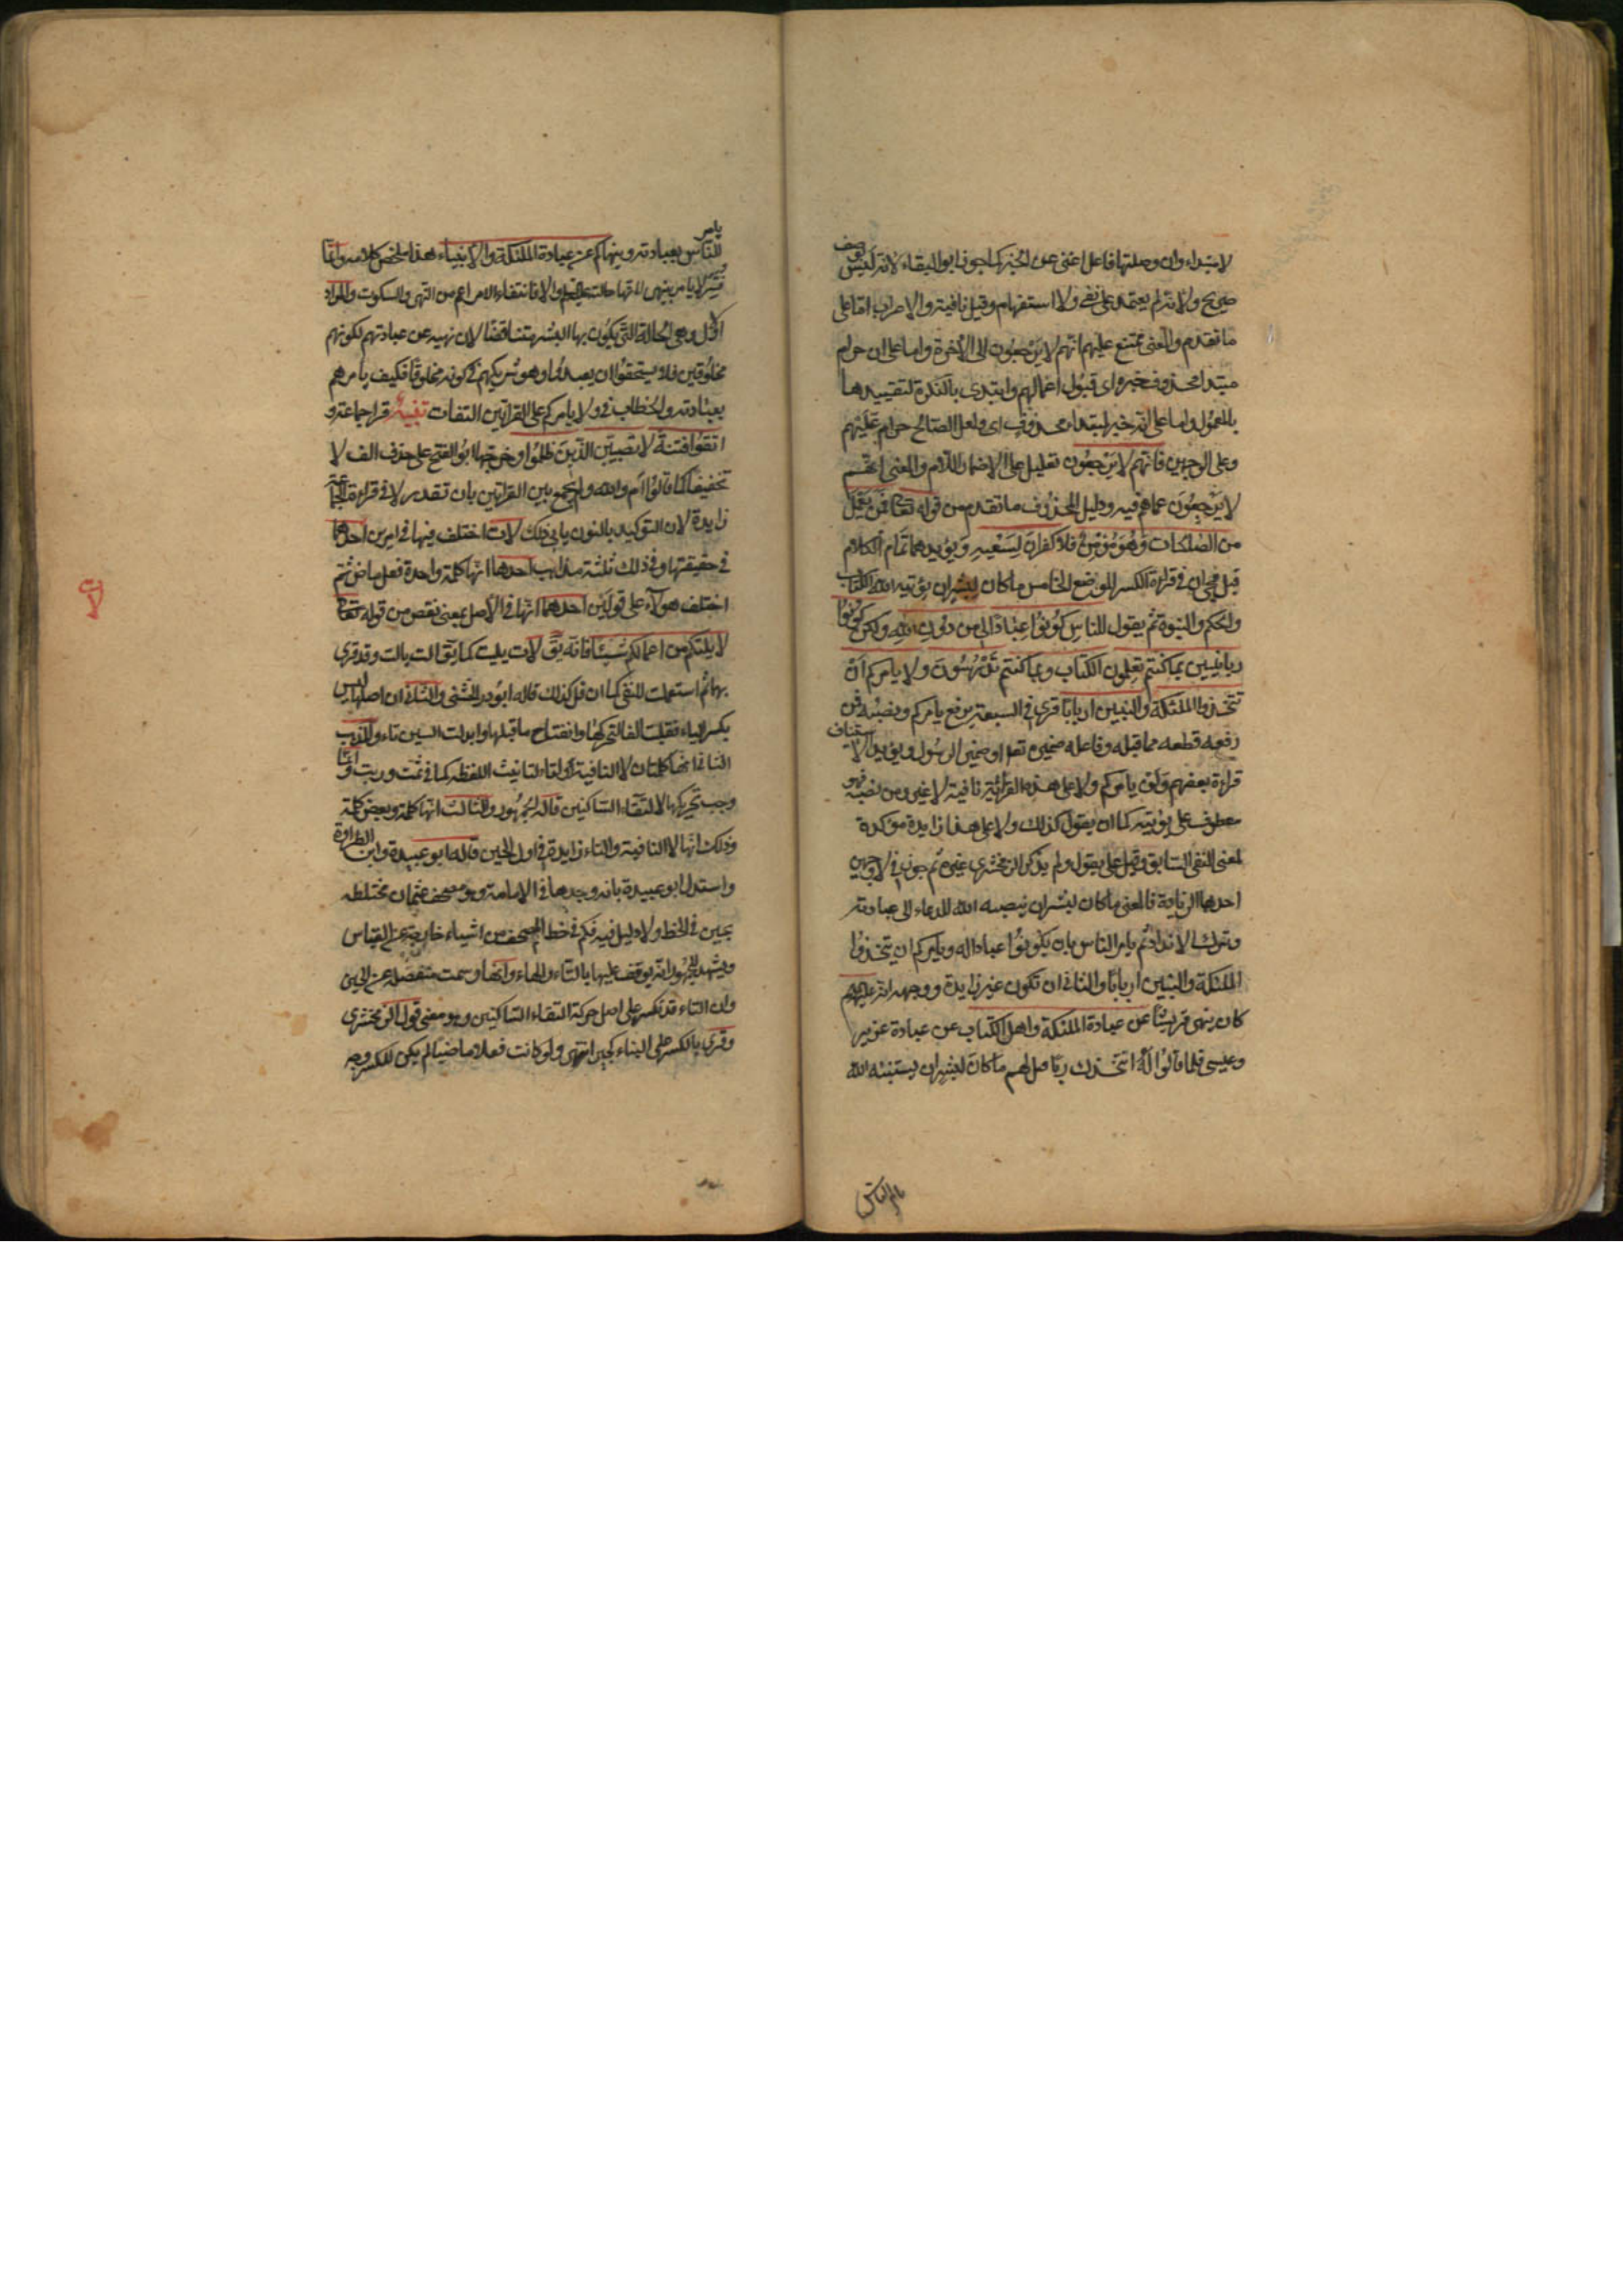 لابتداء وان وصلتها فاعل اغنى عن الخبر كما جوز ابو البقاء لانه ليس بوصف
صريح ولانه لم يعتمد على نفى ولا استفهام وقيل نافية والاعراب اما على
ما تقدم والمعنى ممتنع عليهم انهم لا يرجعون الى الاخرة واما على ان حرام
مبتدا محذوف خبره اى قبول اعمالهم وابتدى بالنكرة لتقييدها
بالمعمول واما على انه خبر لمبتدا محذوف اى والعمل الصالح حرام عليهم
وعلى الوجهين فانهم لا يرجعون تعليل على اضمار اللام والمعنى انهم
لا يرجعون عما هم فيه ودليل المحذوف ما تقدم من قوله تعالى فمن يعمل
من الصلحات وهو مؤمن فلا كفران لسعيه ويؤيدهما تمام الكلام
قبل مجئ ان فى قراءة الكسر الموضع الخامس ما كان لبشر ان يؤتيه الله الكتاب
والحكم والنبوة ثم يقول للناس كونوا عبادا لى من دون الله ولكن كونوا
ربانيين بما كنتم تعلمون الكتاب وبما كنتم تدرسون ولا يامركم ان
تتخذوا الملئكة والنبيين اربابا قرئ فى السبعة برفع يامركم ونصبه فمن
رفعه قطعه مما قبله وفاعله ضميره تعالى او ضمير الرسول ويؤيد الاستئناف
قراءة بعضهم ولن يامركم ولا على هذه القراءة نافية لا غير ومن نصبه فهو
معطوف على يؤتيه كما ان يقول كذلك ولا على هذا زايدة مؤكدة
لمعنى النفى السابق وقيل على يقول ولم يذكر الزمخشرى غيره ثم جوز فى لا وجهين
احدها الزيادة فالمعنى ما كان لبشر ان ينصبه الله للدعاء الى عبادته
وترك الانداد ثم يامر الناس بان يكونوا عبادا له ويامركم ان تتخذوا
الملئكة والنبيين اربابا والثانى ان تكون غير زايدة ووجهه انه عليهم
كان ينهى قريشا عن عبادة الملئكة واهل الكتاب عن عبادة عزير
وعيسى فلما قالوا له انتخذك ربا قيل لهم ما كان لبشر ان يستنبئه الله
يامر الناس
يامر
الناس بعبادته وينهاكم عن عبادة الملئكة والانبياء هذا ملخص كلامه وانما
فسر لا يامر بينهى لانها حالته عليه السلام والا فانتفاء الامر اعم من النهى والسكوت والمراد
الاول وهى الحالة التى يكون بها البشر متناقضا لان نهيه عن عبادتهم لكونهم
مخلوقين فلا يستحقوا ان يعبدوا وهو شريكهم فى كونه مخلوقا فكيف يامرهم
بعبادته والخطاب فى ولا يامركم على القراءتين التفات تنبيه قرا جماعة و
اتقوا فتنة لا تصيبن الذين ظلموا وخرجها ابو الفتح على حذف الف لا
تخفيفا كما قالوا ام والله ولم يجمع بين القراتين بان تقدر لا فى قراءة الجماعة
زايدة لان التوكيد بالنون يابى ذلك لات اختلف فيها فى امرين احدهما
فى حقيقتها وفى ذلك ثلثة مذاهب احدها انها كلمة واحدة فعل ماض ثم
اختلف هولاء على قولين احدهما انها فى الاصل بمعنى نقص من قوله تعالى
لا يلتكم من اعمالكم شيئا فانه يق لات يليت كما يق الت يالت وقد قرئ
بهما ثم استعملت للنفى كما ان قل كذلك قاله ابو ذر الخشنى والثانى ان اصلها ليس
بكسر الياء فقلبت الفا لتحركها وانفتاح ما قبلها وابدلت السين تاء والمذهب
الثانى انها كلمتان لا النافية والتاء لتانيث اللفظة كما فى ثمت وربت وانما
وجب تحريكها لالتقاء الساكنين قاله الجمهور والثالث انها كلمة وبعض كلمة
وذلك انها لا النافية والتاء زايدة فى اول الحين قاله ابو عبيدة وابن الطراوة
واستدل ابو عبيدة بانه وجدها فى الامام وهو مصحف عثمان مختلطة
بحين فى الخط ولا دليل فيه فكم فى خط المصحف من اشياء خارجة عن القياس
ويشهد للجمهور انه يوقف عليها بالتاء والهاء وانها رسمت منفصلة عن الحين
وان التاء قد تكسر على اصل حركة التقاء الساكنين وهو معنى قول الزمخشرى
وقرئ بالكسر على البناء كجير انتهى ولو كانت فعلا ماضيا لم يكن للكسر وجه